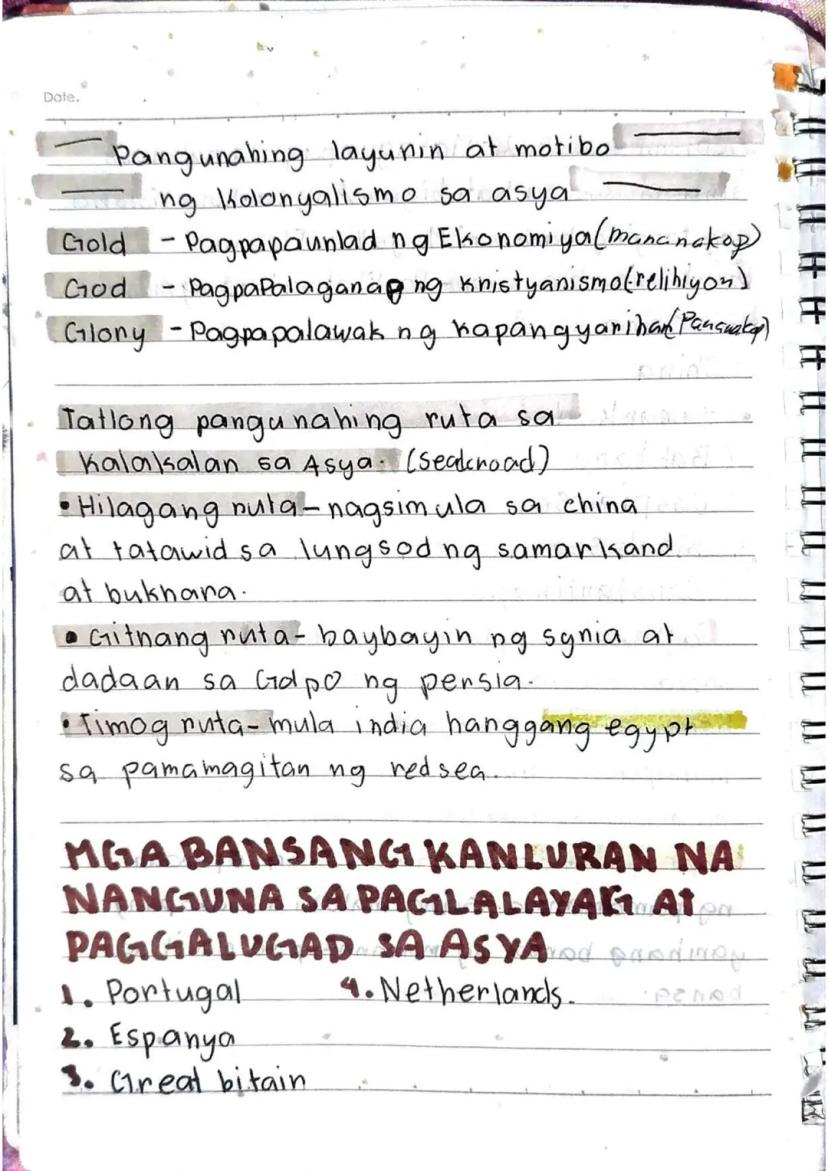 Date.
Pangunahing layunin at motibo
ng kolonyalismo sa asya
Gold - Pagpapaunlad ng Ekonomiya (mananakop)
God - Pagpapalaganap ng kristyanismo (relihiyon)
Glory - Pagpapalawak ng kapangyarihan
Tatlong pangunahing ruta sa
Kalakalan sa Asya.
• Hilagang ruta - nagsimula sa china
at tatawid sa lungsod ng samarkand
at bukhara.
• Gitnang ruta - baybayin ng syria at
dadaan sa Golpo ng persia.
• Timog ruta - mula india hanggang egypt
sa pamamagitan ng redsea.
MGA BANSANG KANLURAN NA
NANGUNA SA PAGLALAYAG At
PAGGALUGAD SA ASYA
1. Portugal 4. Netherlands.
2. Espanya
3. Great bitain